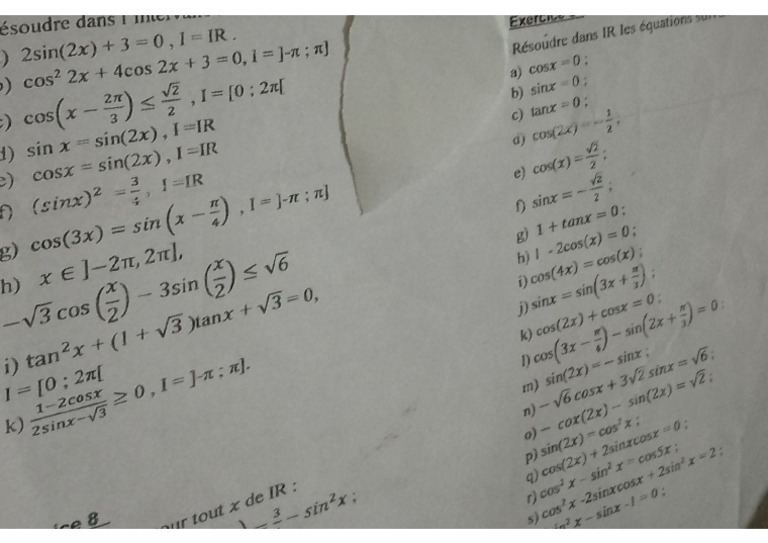 ésoudre dans l
) 2sin(2x) + 3 = 0 , I = IR .
) cos² 2x + 4cos 2x + 3 = 0, I = ]-π ; π]
) cos(x − 2π/3) ≤ √2/2 , I = [0 ; 2π[
d) sin x = sin(2x) , I = IR
e) cosx = sin(2x) , I = IR
f) (sinx)² = 3/4 , I = IR
g) cos(3x) = sin(x − π/4) , I = ]-π ; π]
h) x ∈ ]−2π, 2π],
−√3 cos(x/2) − 3sin(x/2) ≤ √6
i) tan²x + (1 + √3 )tanx + √3 = 0,
I = [0 ; 2π[
k) 1−2cosx/2sinx−√3 ≥ 0 , I = ]-π ; π].
ce 8
ur tout x de IR :
= 3/ − sin²x ;
Exercice
Résoudre dans IR les équations
a) cosx = 0 ;
b) sinx = 0 ;
c) tanx = 0 ;
d) cos(2x) = −1/2 ;
e) cos(x) = √2/2 ;
f) sinx = −√2/2 ;
g) 1 + tanx = 0 ;
h) 1 - 2cos(x) = 0 ;
i) cos(4x) = cos(x) ;
j) sinx = sin(3x + π/3) ;
k) cos(2x) + cosx = 0 ;
l) cos(3x − π/6) − sin(2x + π/3) = 0 ;
m) sin(2x) = − sinx ;
n) − √6 cosx + 3√2 sinx = √6 ;
o) − cox(2x) − sin(2x) = √2 ;
p) sin(2x) = cos²x ;
q) cos(2x) + 2sinxcosx = 0 ;
r) cos² x − sin² x = cos5x ;
s) cos² x -2sinxcosx + 2sin² x = 2 ;
sin² x − sinx -1 = 0 ;